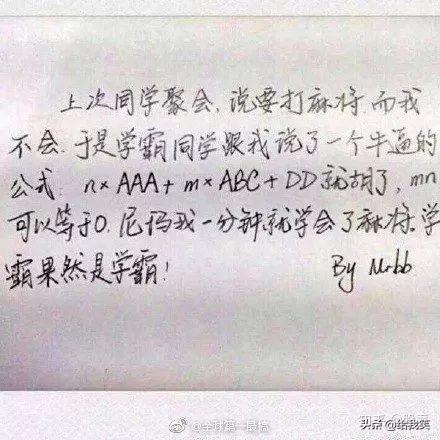 上次同学聚会，说要打麻将，而我
不会．于是学霸同学跟我说了一个牛逼的
公式：n×AAA+m×ABC+DD就胡了，mn
可以等于0．尼玛我一分钟就学会了麻将．学
霸果然是学霸！ By Mrbb
@全球第一最搞
头条@给我笑